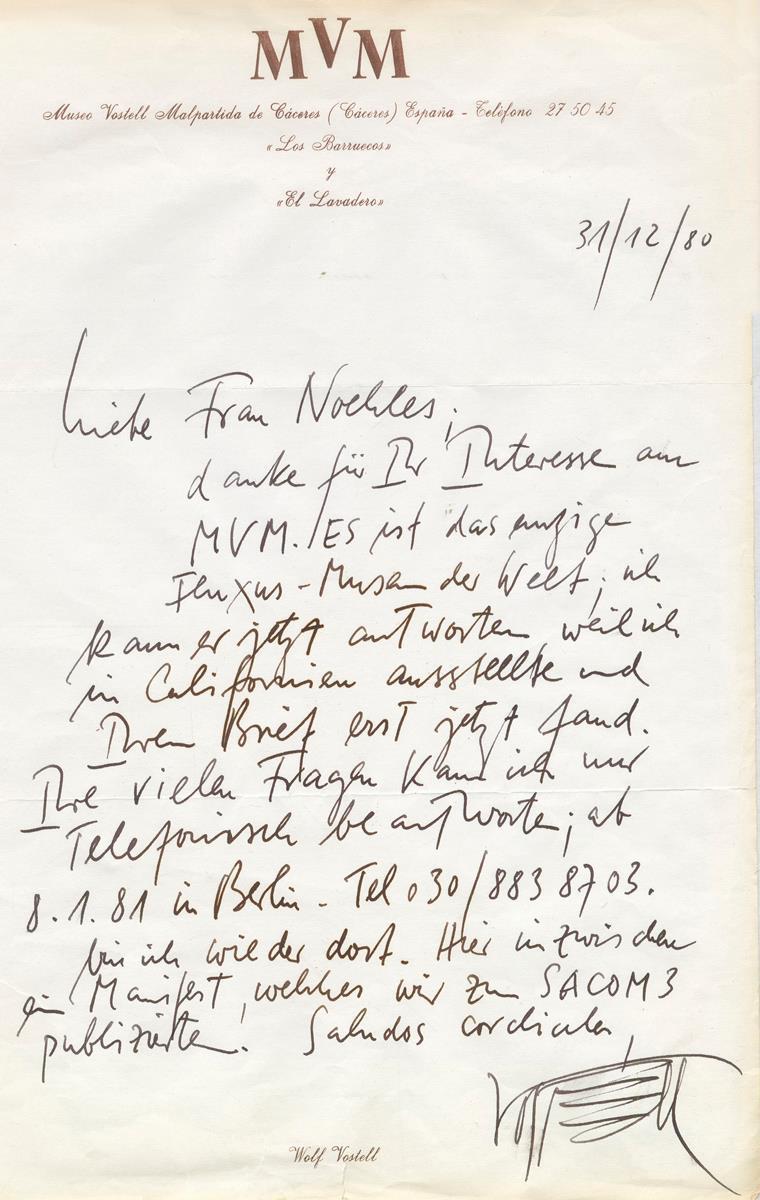 MVM
Museo Vostell Malpartida de Cáceres (Cáceres) España - Teléfono 27 50 45
«Los Barruecos»
y
«El Lavadero»
31/12/80
Liebe Frau
danke für Ihr Interesse am
MVM. Es ist das einzige
Fluxus-Museum der Welt; ich
kann er jetzt antworten weil ich
in Californien ausstellte und
Ihren Brief erst jetzt fand.
Ihre vielen Fragen kann ich nur
Telefonisch beantworten; ab
8.1.81 in Berlin - Tel 030/883 8703.
bin ich wieder dort. Hier inzwischen
ein Manifest, welches wir zum SACOM 3
publizierten. Saludos cordiales,
Vostell
Wolf Vostell